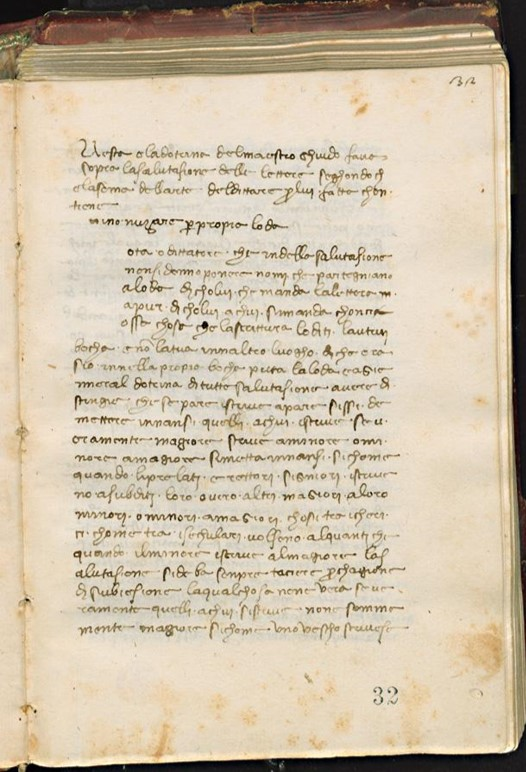 32
Uesta e la dotrina del maestro Ghuido fava
sopra la salutasione delle lettere seghondo ch
e la soma de larte del dittare p lui fatta chon
tiene
nino nuzare p propria loda
ota o dittatore che in della salutasione
non si denno ponere nomi che partegniano
a loda di cholui che manda la lettera in
a pur di cholui a chui si manda chontra
ossa chosa che la scrittura lo diti laltrui
bocha e no la tua innaltro luogho di che ora
sio innella propio bocha puta la loda e agie
ineral dotrina di tutte salutasione avere di
stingie che se pare iscrive a pare sissi de
mettere innansi quelli a chui iscrive se v
eramente magiore scrive a minore o mi
nore a magiore si metta innansi sichome
quando li prelati e rettori signiori iscrive
no a subditi loro overo altri magiori a loro
minori o minori a magiori chosi tra i cheri
ci chome tra i sechulari voglieno alquanti che
quando il minore iscrive al magiore la s
alutasione si deba senpre taciere p chagione
di subiesione la qual chosa none vera se ve
ramente quelli a chui si scrive none somma
mente magiore sichome uno vescho scrivese
32